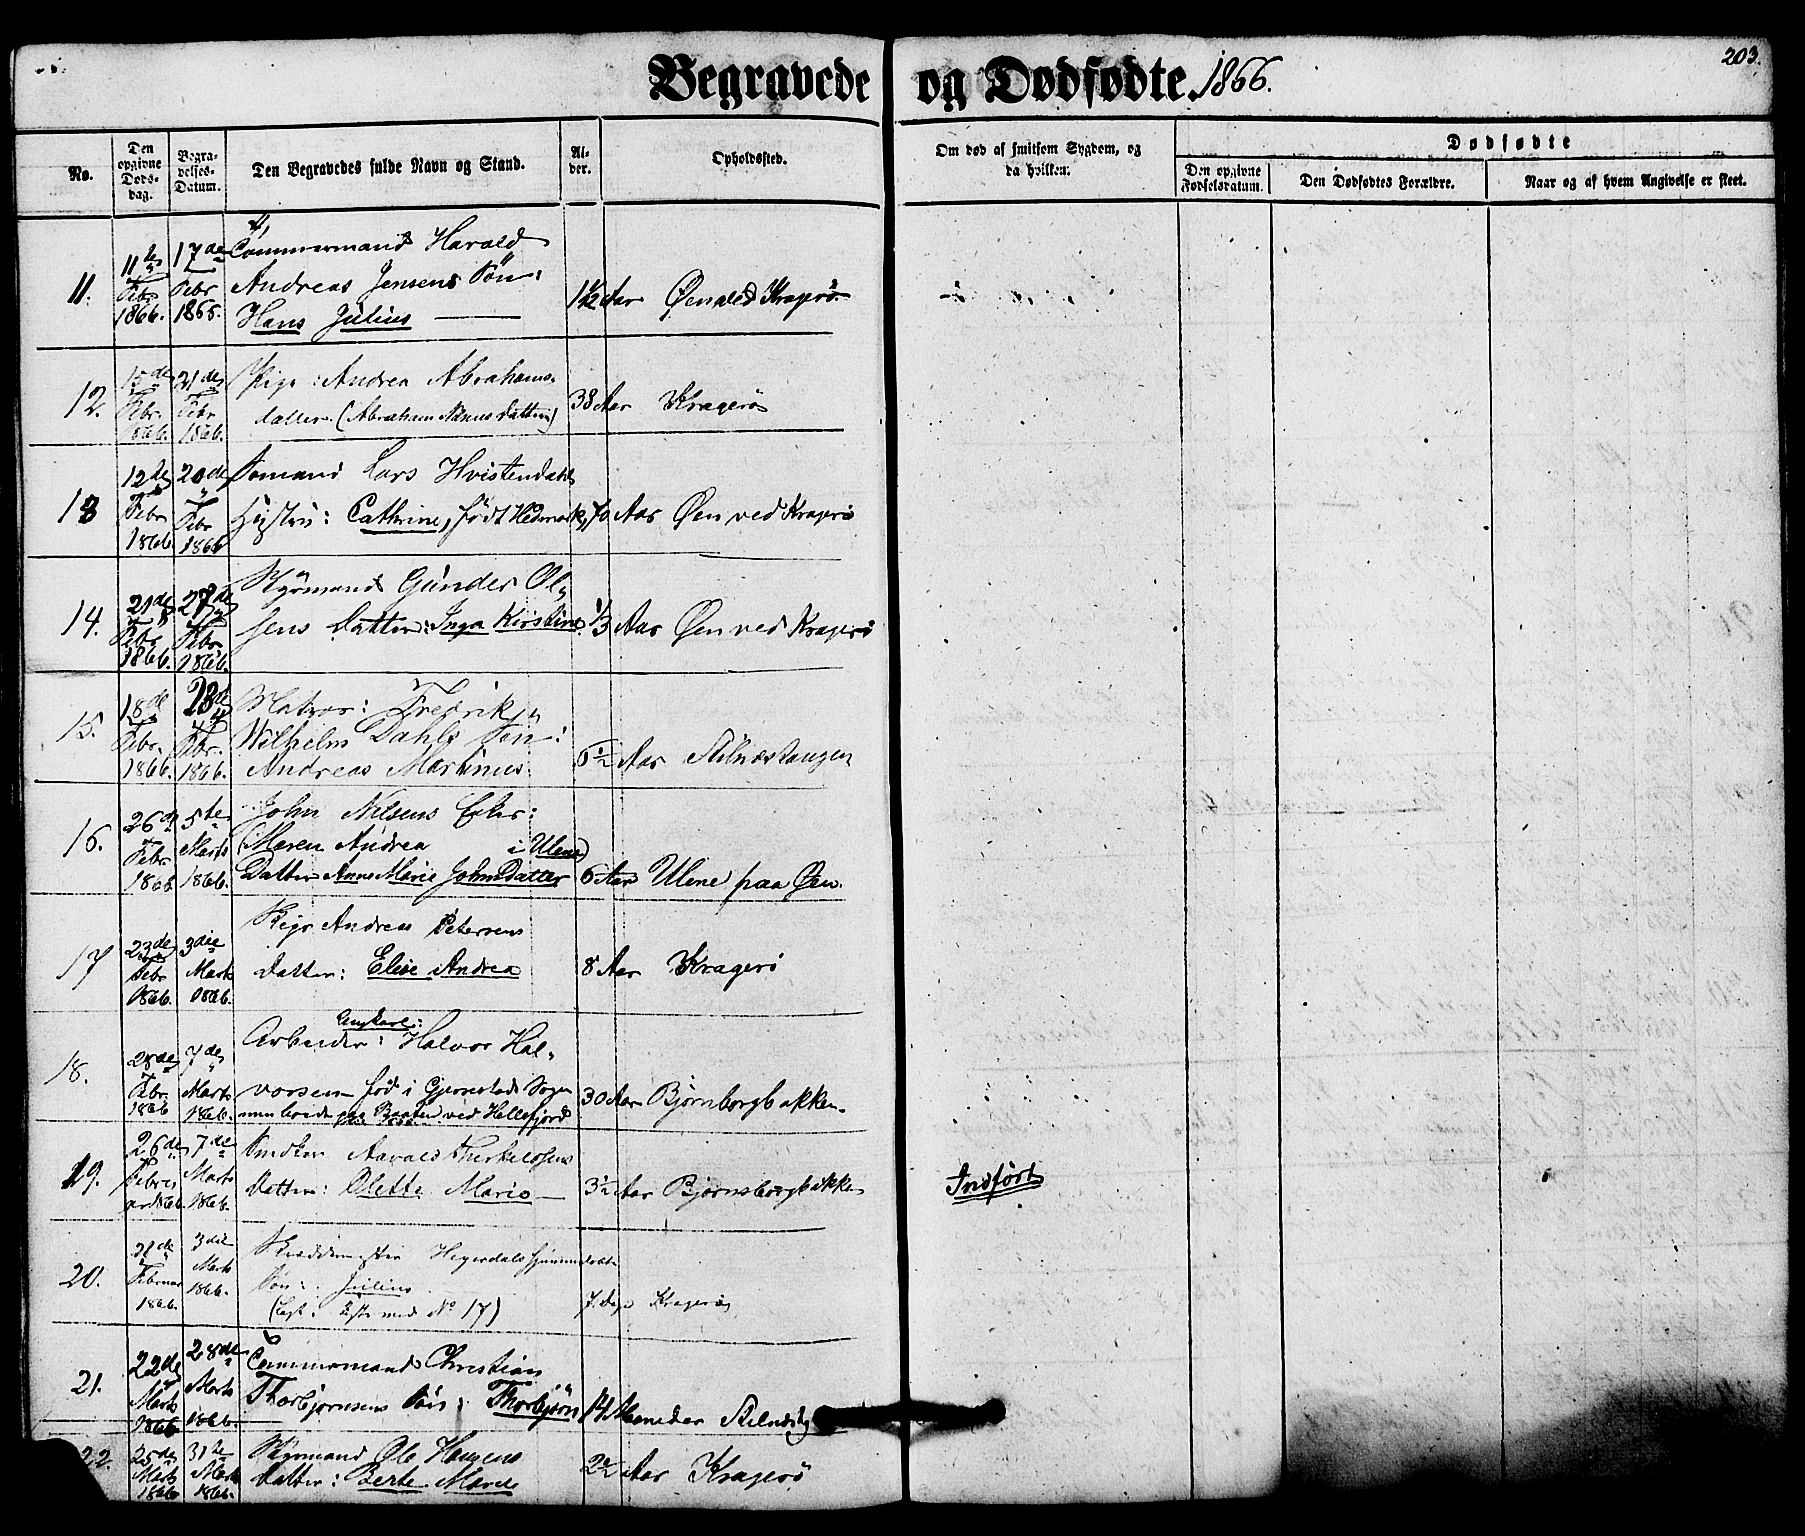 203.
Begravede og Dødfødte. 1866.
No.
Den opgivne Døds-dag.
Begra-velses-Datum.
Den Begravedes fulde Navn og Stand.
Al-der.
Opholdssted.
Om død af smitsom Sygdom, og da hvilken.
Dødfødte
Den opgivne Fødselsdatum.
Den Dødfødtes Forældre.
Naar og af hvem Angivelse er skeet.
11. 11te Febr 1866. 17de Febr 1866. Tömmermand Harald
Andreas Jensens Sön:
Hans Julius 1 1/2 Aar Øen ved Kragerö
12. 15de Febr. 1866. 21de Febr 1866. Pige: Andrea Abrahams-
datter (Abraham Datter) 38 Aar Kragerö
13 12te Febr 1866. 20de Febr 1866 Sömand Lars Hvistendahls
Hustru: Cathrine, födt Hedmark, 70 Aar Øen ved Kragerö
14. 21de Febr 1866. 27de Febr. 1866. Styrmand Gunder Ol-
sens Datter: Inga Kirstine. 1/3 Aar Øen ved Kragerö
15. 18de Febr. 1866. 23de Febr. 1866. Matros: Fredrik
Wilhelm Dahls Sön:
Andreas Martinus: 6 1/2 Aar Stilnæstangen
16. 26de Febr 1866. 5te Marts 1866. John Nilsens Enke:
(Maren Andrea i Ulene)
Datter Anne Marie Johnsdatter 6 Aar Ulene paa Øen.
17 23de Febr 1866. 3die Marts 1866. Andreas Petersens
Datter: Elise Andrea 8 Aar Kragerö
18. 28de Febr. 1866 7de Marts 1866. Ungkarl:
Arbeider: Halvor Hal-
vorsen född i Gjerrestads Sogn
ved Hellefjord 30 Aar Björnborgbakken.
19. 26de Febru ar 1866. 7de Marts 1866. Aavald Therkelsens
Datter: Olette Marie 3 1/2 Aar Björnsborgbakken Indfört
20. 28de Februar 1866. 3die Marts 1866.
Sön: Julius.
No 17) 7 Dage Kragerö
21. 22de Marts 1866 28de Marts 1866. Tömmermand Christian
Thorbjörnsens Sön: Thorbjörn 14 Maaneder
22. 25de Marts 1866 31te Marts 1866. Styrmand Ole Hansens
Datter: Berte Marie 2 1/2 Aar Kragerö